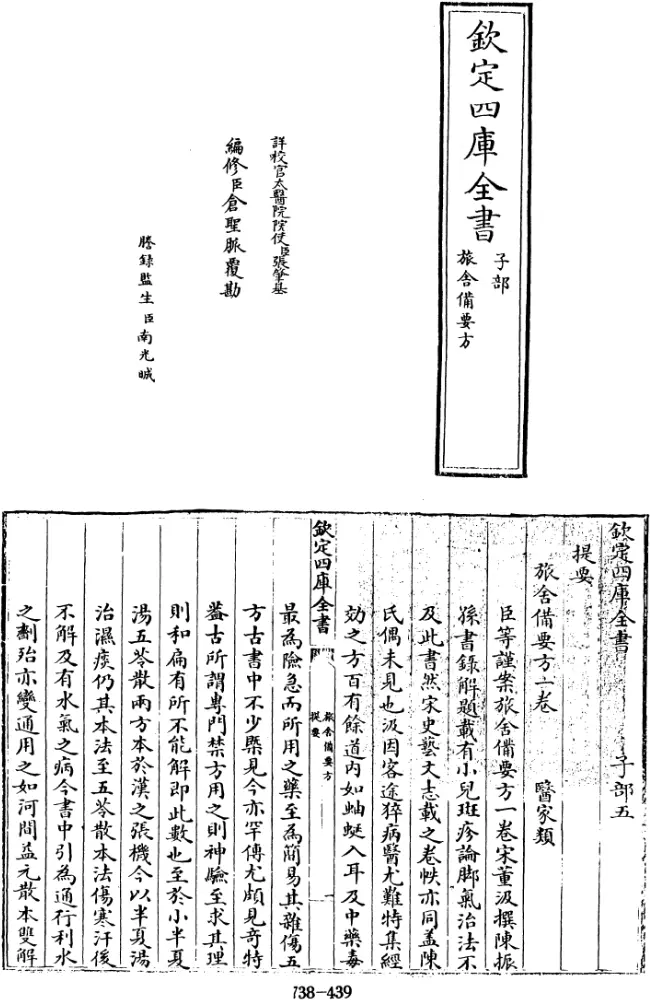 欽定四庫全書
子部
旅舍備要方
詳校官太醫院院使臣張肇基
編修臣倉聖脈覆勘
謄錄監生臣南光㬢
欽定四庫全書
子部五
提要
醫家類
旅舍備要方一卷
臣等謹案旅舍備要方一卷宋董汲撰陳振
孫書錄解題載有小兒斑疹論脚氣治法不
及此書然宋史藝文志載之卷帙亦同蓋陳
氏偶未見也汲因客途猝病醫尤難特集經
効之方百有餘道内如蚰蜒入耳及中藥毒
欽定四庫全書
旅舍備要方
提要
一
最為險急而所用之藥至為簡易其雜傷五
方古書中不少槩見今亦罕傳尤頗見奇特
蓋古所謂專門禁方用之則神驗至求其理
則和扁有所不能解即此數也至於小半夏
湯五苓散兩方本於漢之張機今以半夏湯
治濕痰仍其本法至五苓散本法傷寒汗後
不解及有水氣之病今書中引為通行利水
之劑殆亦變通用之如河間益元散本雙解
738-439